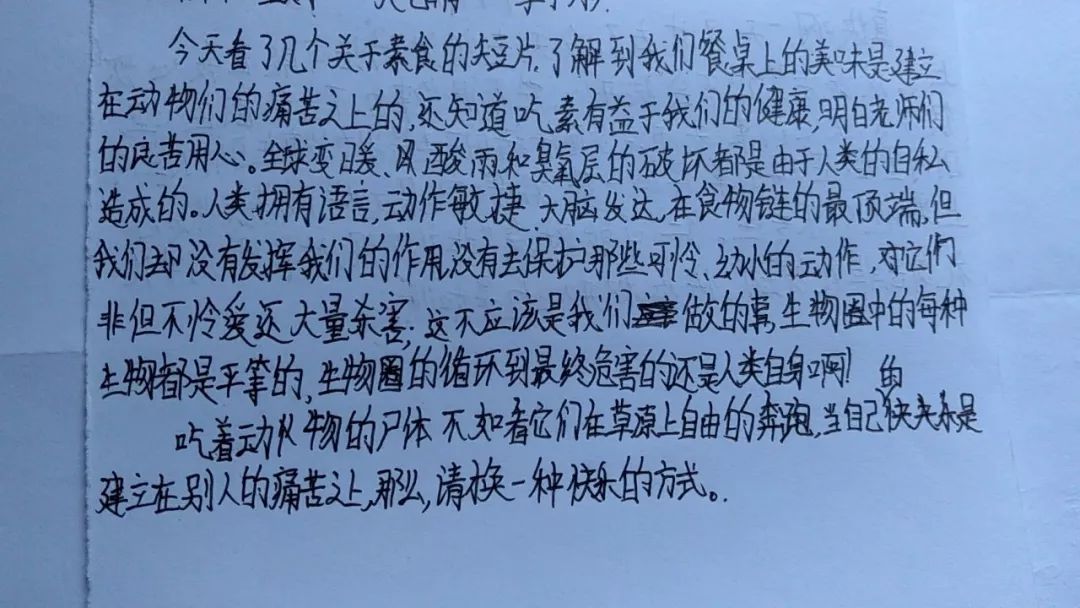 今天看了几个关于素食的短片,了解到我们餐桌上的美味是建立
在动物们的痛苦之上的,还知道吃素有益于我们的健康,明白老师们
的良苦用心。全球变暖、酸雨和臭氧层的破坏都是由于人类的自私
造成的。人类拥有语言,动作敏捷,大脑发达,在食物链的最顶端,但
我们却没有发挥我们的作用,没有去保护那些可怜、幼小的动作,对它们
非但不怜爱还大量杀害,这不应该是我们做的事,生物圈中的每种
生物都是平等的,生物圈的循环到最终危害的还是人类自身啊!
吃着动物的尸体不如看它们在草原上自由的奔跑,当自己的快乐是
建立在别人的痛苦之上,那么,请换一种快乐的方式。